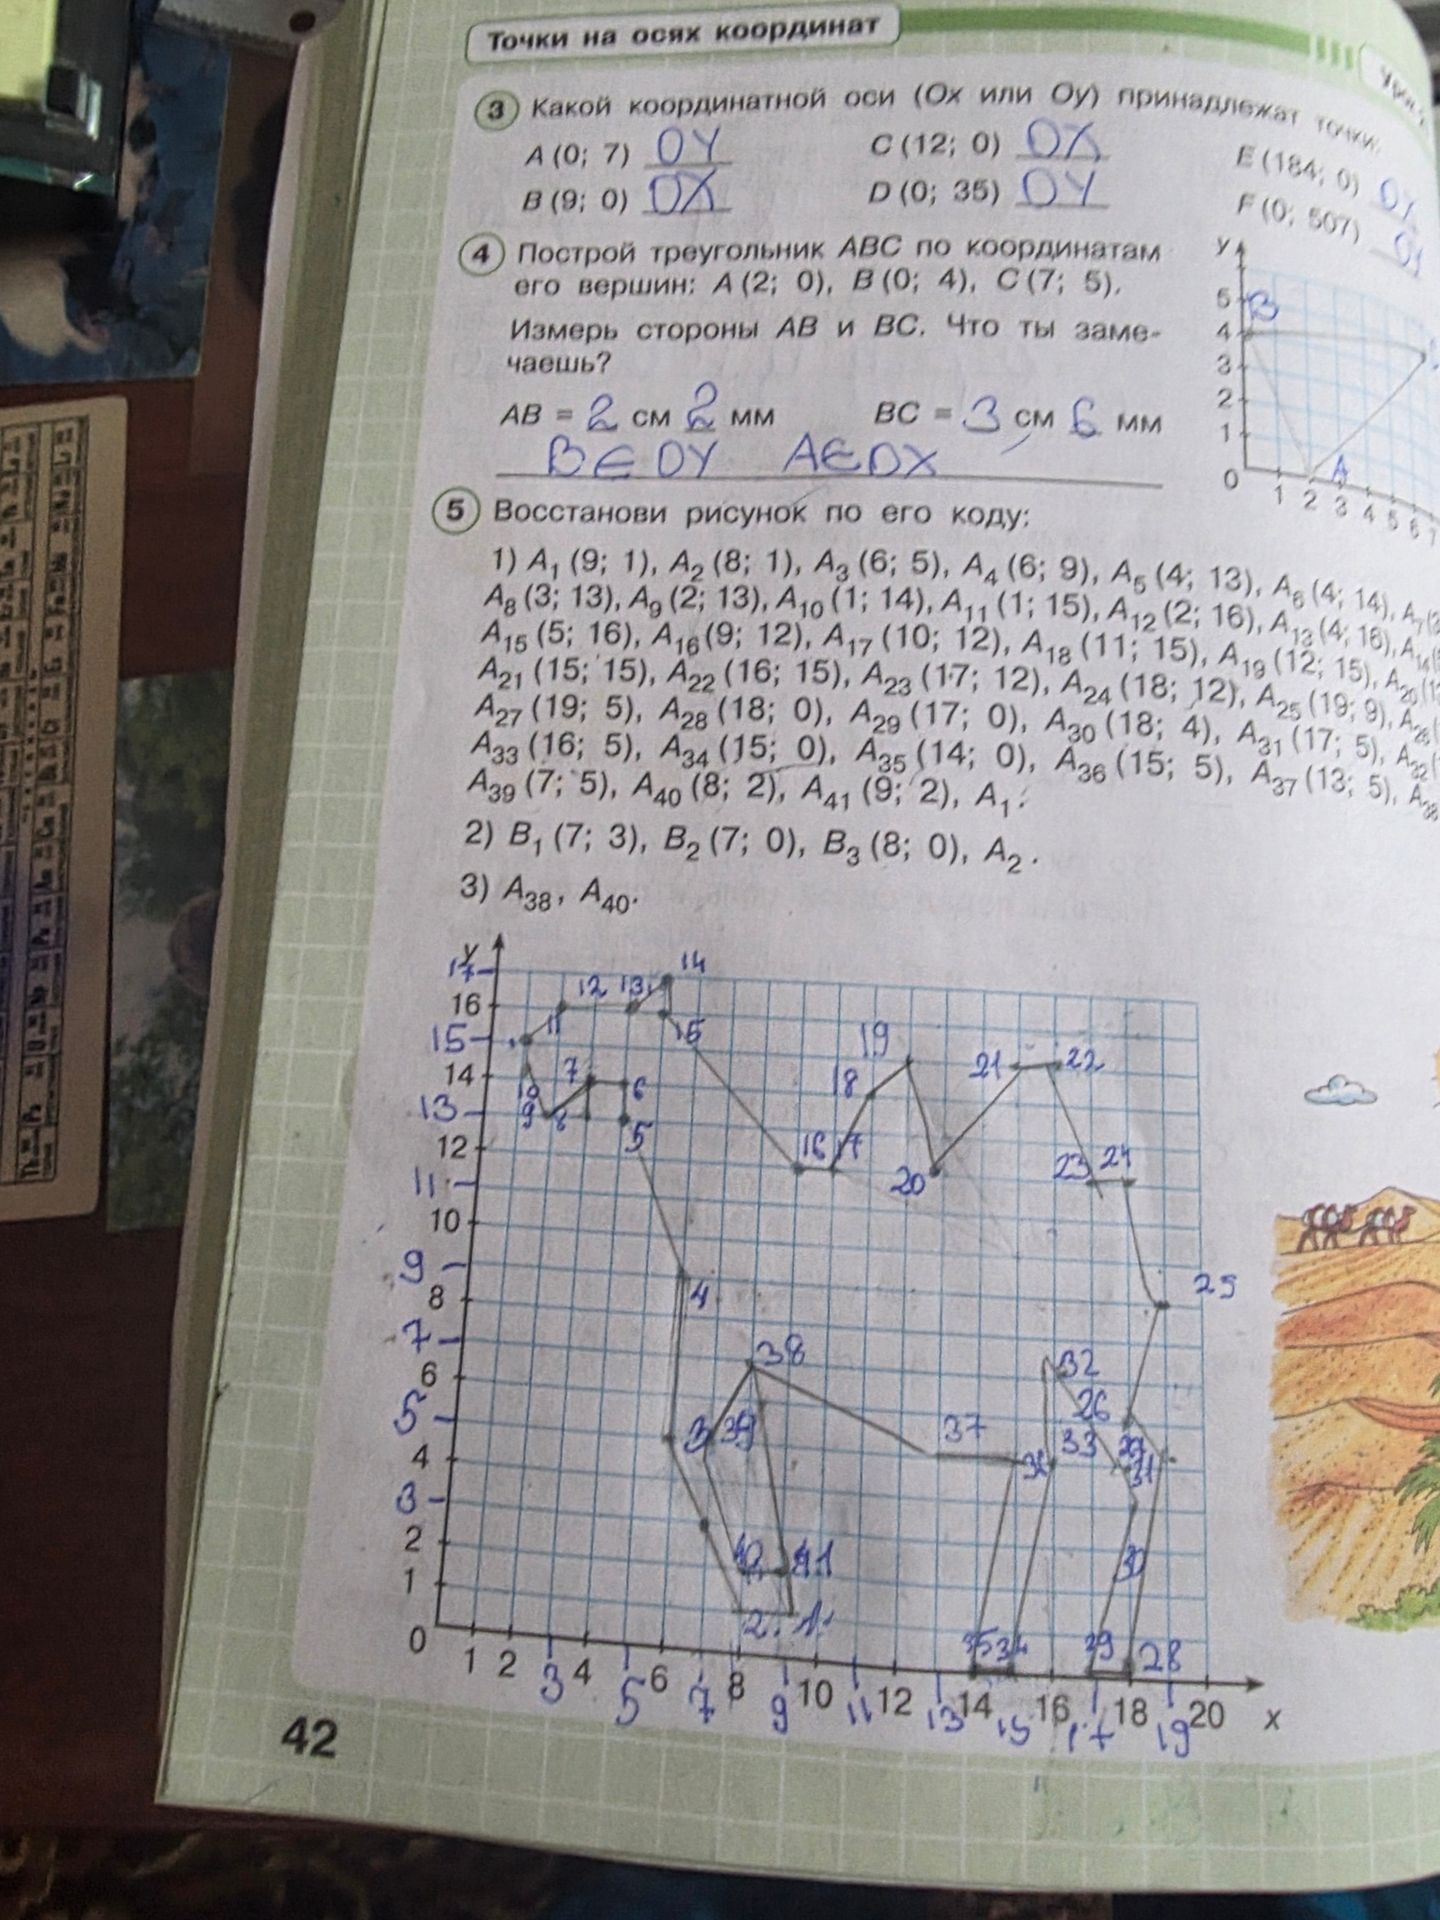 Точки на осях координат
3 Какой координатной оси (Ox или Oy) принадлежат точки:
A (0; 7) OY C (12; 0) OX E (184; 0)
B (9; 0) OX D (0; 35) OY F (0; 507)
4 Построй треугольник ABC по координатам
его вершин: A (2; 0), B (0; 4), C (7; 5).
Измерь стороны AB и BC. Что ты заме-
чаешь?
AB = 2 см 2 мм BC = 3 см 6 мм
B ∈ OY A ∈ OX
y
5 B
4
3
2
1
0 1 2 A 3 4 5 6 7
5 Восстанови рисунок по его коду:
1) A₁ (9; 1), A₂ (8; 1), A₃ (6; 5), A₄ (6; 9), A₅ (4; 13), A₆ (4; 14), A₇
A₈ (3; 13), A₉ (2; 13), A₁₀ (1; 14), A₁₁ (1; 15), A₁₂ (2; 16), A₁₃ (4; 16), A₁₄
A₁₅ (5; 16), A₁₆ (9; 12), A₁₇ (10; 12), A₁₈ (11; 15), A₁₉ (12; 15), A₂₀
A₂₁ (15; 15), A₂₂ (16; 15), A₂₃ (17; 12), A₂₄ (18; 12), A₂₅ (19; 9), A₂₆
A₂₇ (19; 5), A₂₈ (18; 0), A₂₉ (17; 0), A₃₀ (18; 4), A₃₁ (17; 5), A₃₂
A₃₃ (16; 5), A₃₄ (15; 0), A₃₅ (14; 0), A₃₆ (15; 5), A₃₇ (13; 5), A₃₈
A₃₉ (7; 5), A₄₀ (8; 2), A₄₁ (9; 2), A₁.
2) B₁ (7; 3), B₂ (7; 0), B₃ (8; 0), A₂.
3) A₃₈, A₄₀.
y
17 14
16 12 13
15 11 15 19 21 22
14 10 7 6 18
13 9 8 5
12 16 17
11 20 23 24
10
9 25
8 4
7 38 32
6 26
5 3 39 37 33 27
4 36 31
3
2 40 41 30
1 2 1
0 35 34 29 28
1 2 3 4 5 6 7 8 9 10 11 12 13 14 15 16 17 18 19 20 x
42